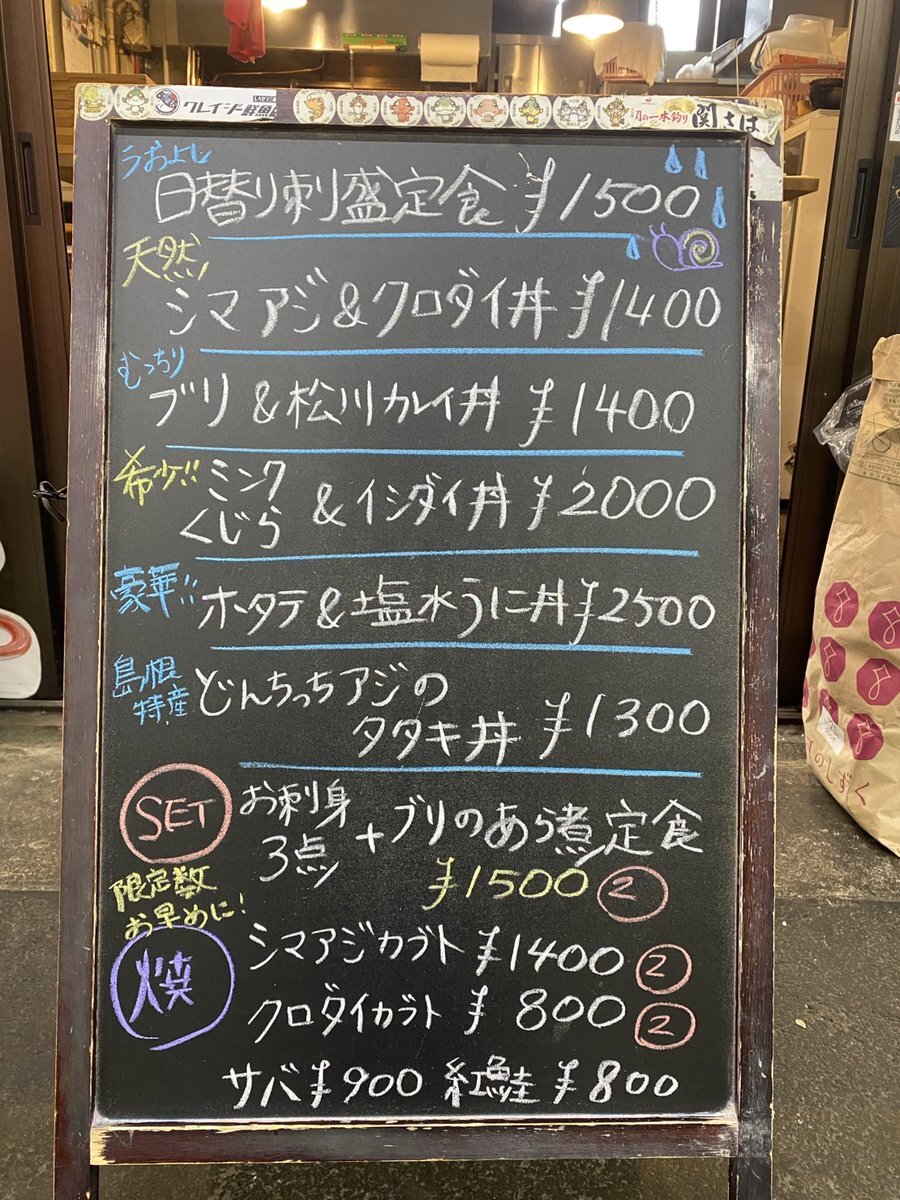 クレイジー鮮魚
月の一本釣り 関さば
うおよし
日替り刺盛定食 ¥1500
天然
シマアジ&クロダイ丼 ¥1400
むっちり
ブリ&松川カレイ丼 ¥1400
希少!! ミンククジら &イシダイ丼 ¥2000
豪華!! ホタテ&塩水うに丼 ¥2500
島根特産 どんちっちアジの
タタキ丼 ¥1300
SET お刺身3点 + ブリのあら煮定食
¥1500 2
限定数
お早めに!
焼 シマアジカブト ¥1400 2
クロダイカブト ¥800 2
サバ ¥900 紅鮭 ¥800
のしずく